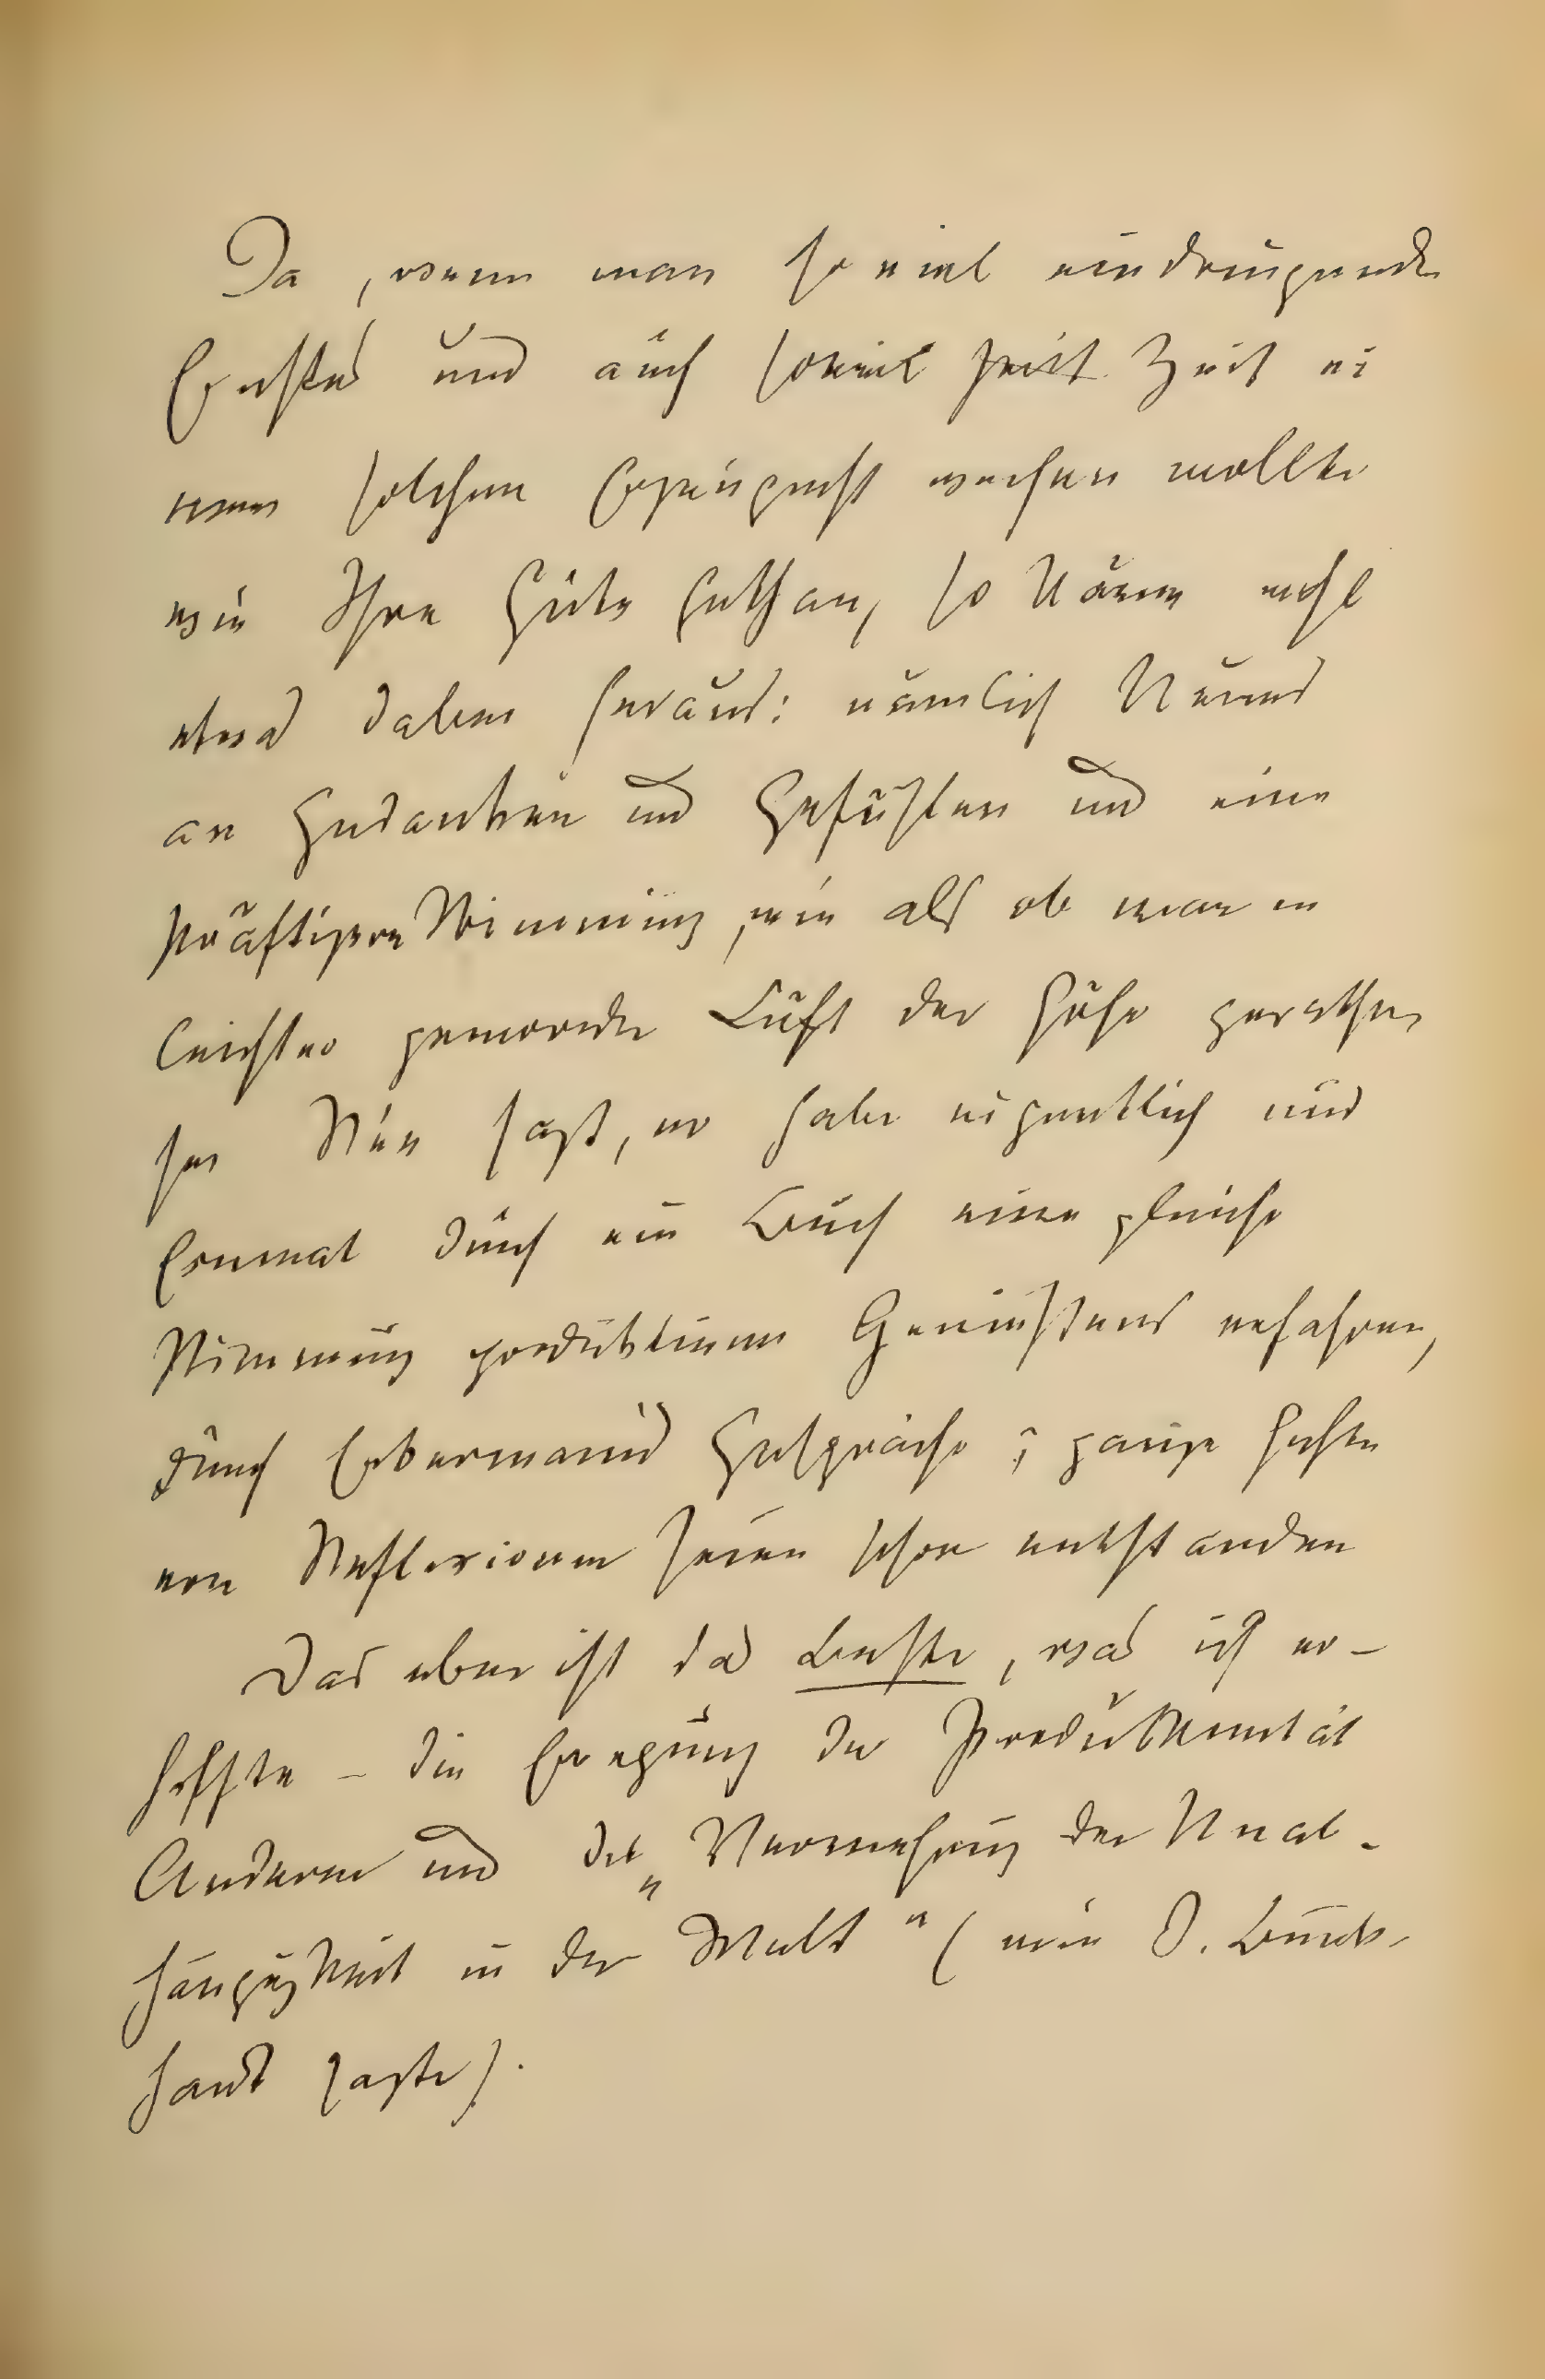 Ja, wenn man so viel eindringenden
Ernstes und auch soviel Zeit ei
nem solchem Erzeugniss weihen wollte
wie Ihre Güte gethan, so käme wohl
etwas dabei heraus: nämlich Neues
an Gedanken und Gefühlen und eine
kräftigere Stimmung, wie als ob man in
leichter gewordene Luft der Höhe gerathen
sei. Rée sagt, er habe eigentlich nur
Einmal durch ein Buch eine gleiche
Stimmung produktiven Geniessens erfahren,
durch Eckermanns Gespräche; ganze Hefte
von Reflexionen seien schon entstanden
Das aber ist das Beste, was ich er-
hoffte – die Erregung der Produktivität
Anderer und die „Vermehrung der Unab-
hängigkeit in der Welt“ (wie J. Burck-
hardt sagte).